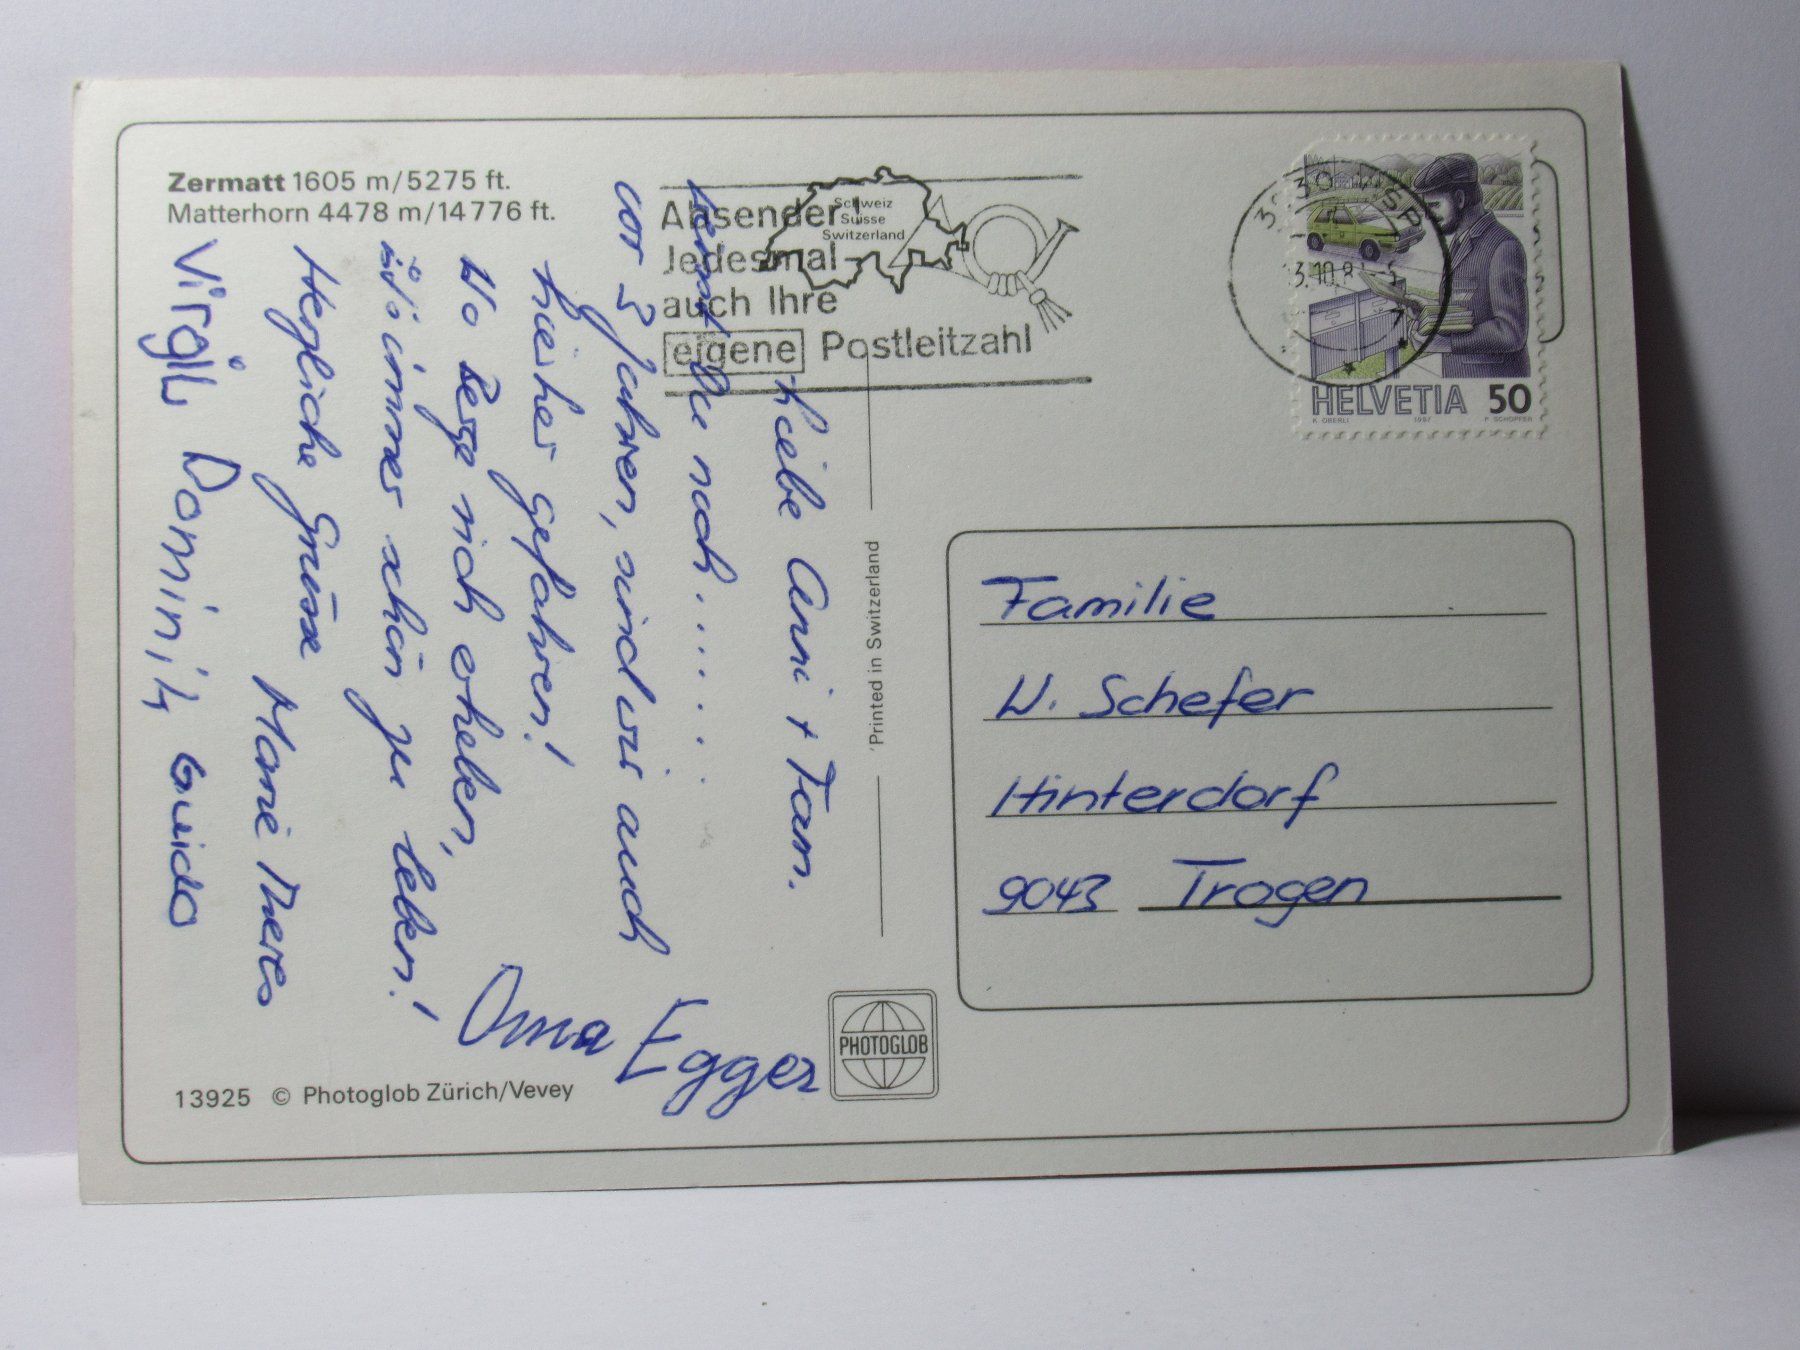 Zermatt 1605 m/5275 ft.
Matterhorn 4478 m/14776 ft.
Absender!
Jedesmal
auch Ihre
eigene Postleitzahl
Schweiz
Suisse
Switzerland
3930 VISP
HELVETIA 50
K. OBERLI 1987 P. SCHOPFER
Liebe Anni + Fam.
Du noch.......
vor 3 Jahren, sind wir auch
hierher gefahren!
Wo Berge sich erheben,
immer schön zu leben!
Herzliche Grüsse Marie Theres
Virgil, Dominik, Guido
Oma Egger
Printed in Switzerland
Familie
W. Schefer
Hinterdorf
9043 Trogen
PHOTOGLOB
13925 © Photoglob Zürich/Vevey